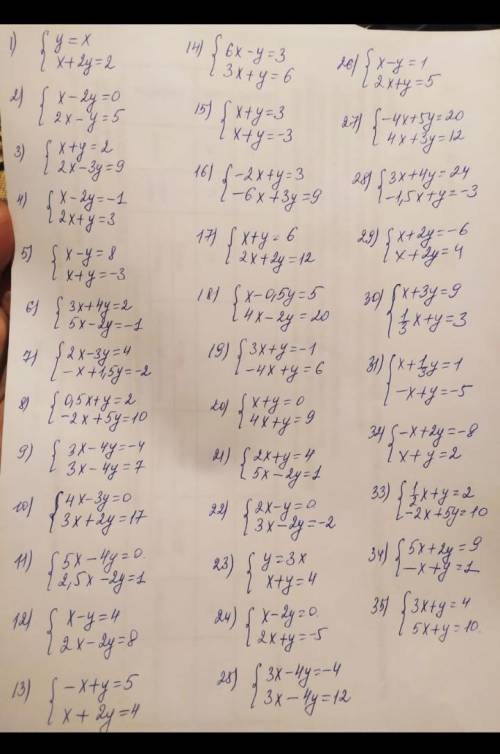 1) { y = x
x+2y=2
2) { x-2y=0
2x-y=5
3) { x+y=2
2x-3y=9
4) { x-2y=-1
2x+y=3
5) { x-y=8
x+y=-3
6) { 3x+4y=2
5x-2y=-1
7) { 2x-3y=4
-x+1,5y=-2
8) { 0,5x+y=2
-2x+5y=10
9) { 3x-4y=-4
3x-4y=7
10) { 4x-3y=0
3x+2y=17
11) { 5x-4y=0
2,5x-2y=1
12) { x-y=4
2x-2y=8
13) { -x+y=5
x+2y=4
14) { 6x-y=3
3x+y=6
15) { x+y=3
x+y=-3
16) { -2x+y=3
-6x+3y=9
17) { x+y=6
2x+2y=12
18) { x-0,5y=5
4x-2y=20
19) { 3x+y=-1
-4x+y=6
20) { x+y=0
4x+y=9
21) { 2x+y=4
5x-2y=1
22) { 2x-y=0
3x-2y=-2
23) { y=3x
x+y=4
24) { x-2y=0
2x+y=-5
25) { 3x-4y=-4
3x-4y=12
26) { x-y=1
2x+y=5
27) { -4x+5y=20
4x+3y=12
28) { 3x+4y=24
-1,5x+y=-3
29) { x+2y=-6
x+2y=4
30) { x+3y=9
1/3x+y=3
31) { x+1/3y=1
-x+y=-5
32) { -x+2y=-8
x+y=2
33) { 1/2x+y=2
-2x+5y=10
34) { 5x+2y=9
-x+y=1
35) { 3x+y=4
5x+y=10